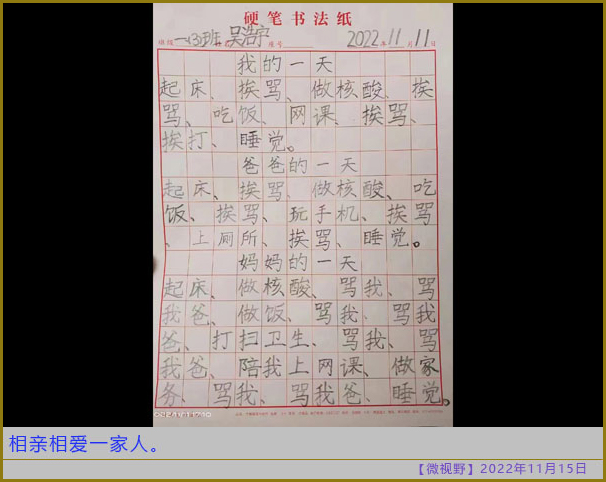 硬笔书法纸
班级一(3)班 姓名吴浩宇 座号 2022年11月11日
我的一天
起床、挨骂、做核酸、挨
骂、吃饭、网课、挨骂、
挨打、睡觉。
爸爸的一天
起床、挨骂、做核酸、吃
饭、挨骂、玩手机、挨骂
、上厕所、挨骂、睡觉。
妈妈的一天
起床、做核酸、骂我、骂
我爸、做饭、骂我、骂我
爸、打扫卫生、骂我、骂
我爸、陪我上网课、做家
务、骂我、骂我爸、睡觉。
相亲相爱一家人。
【微视野】2022年11月15日